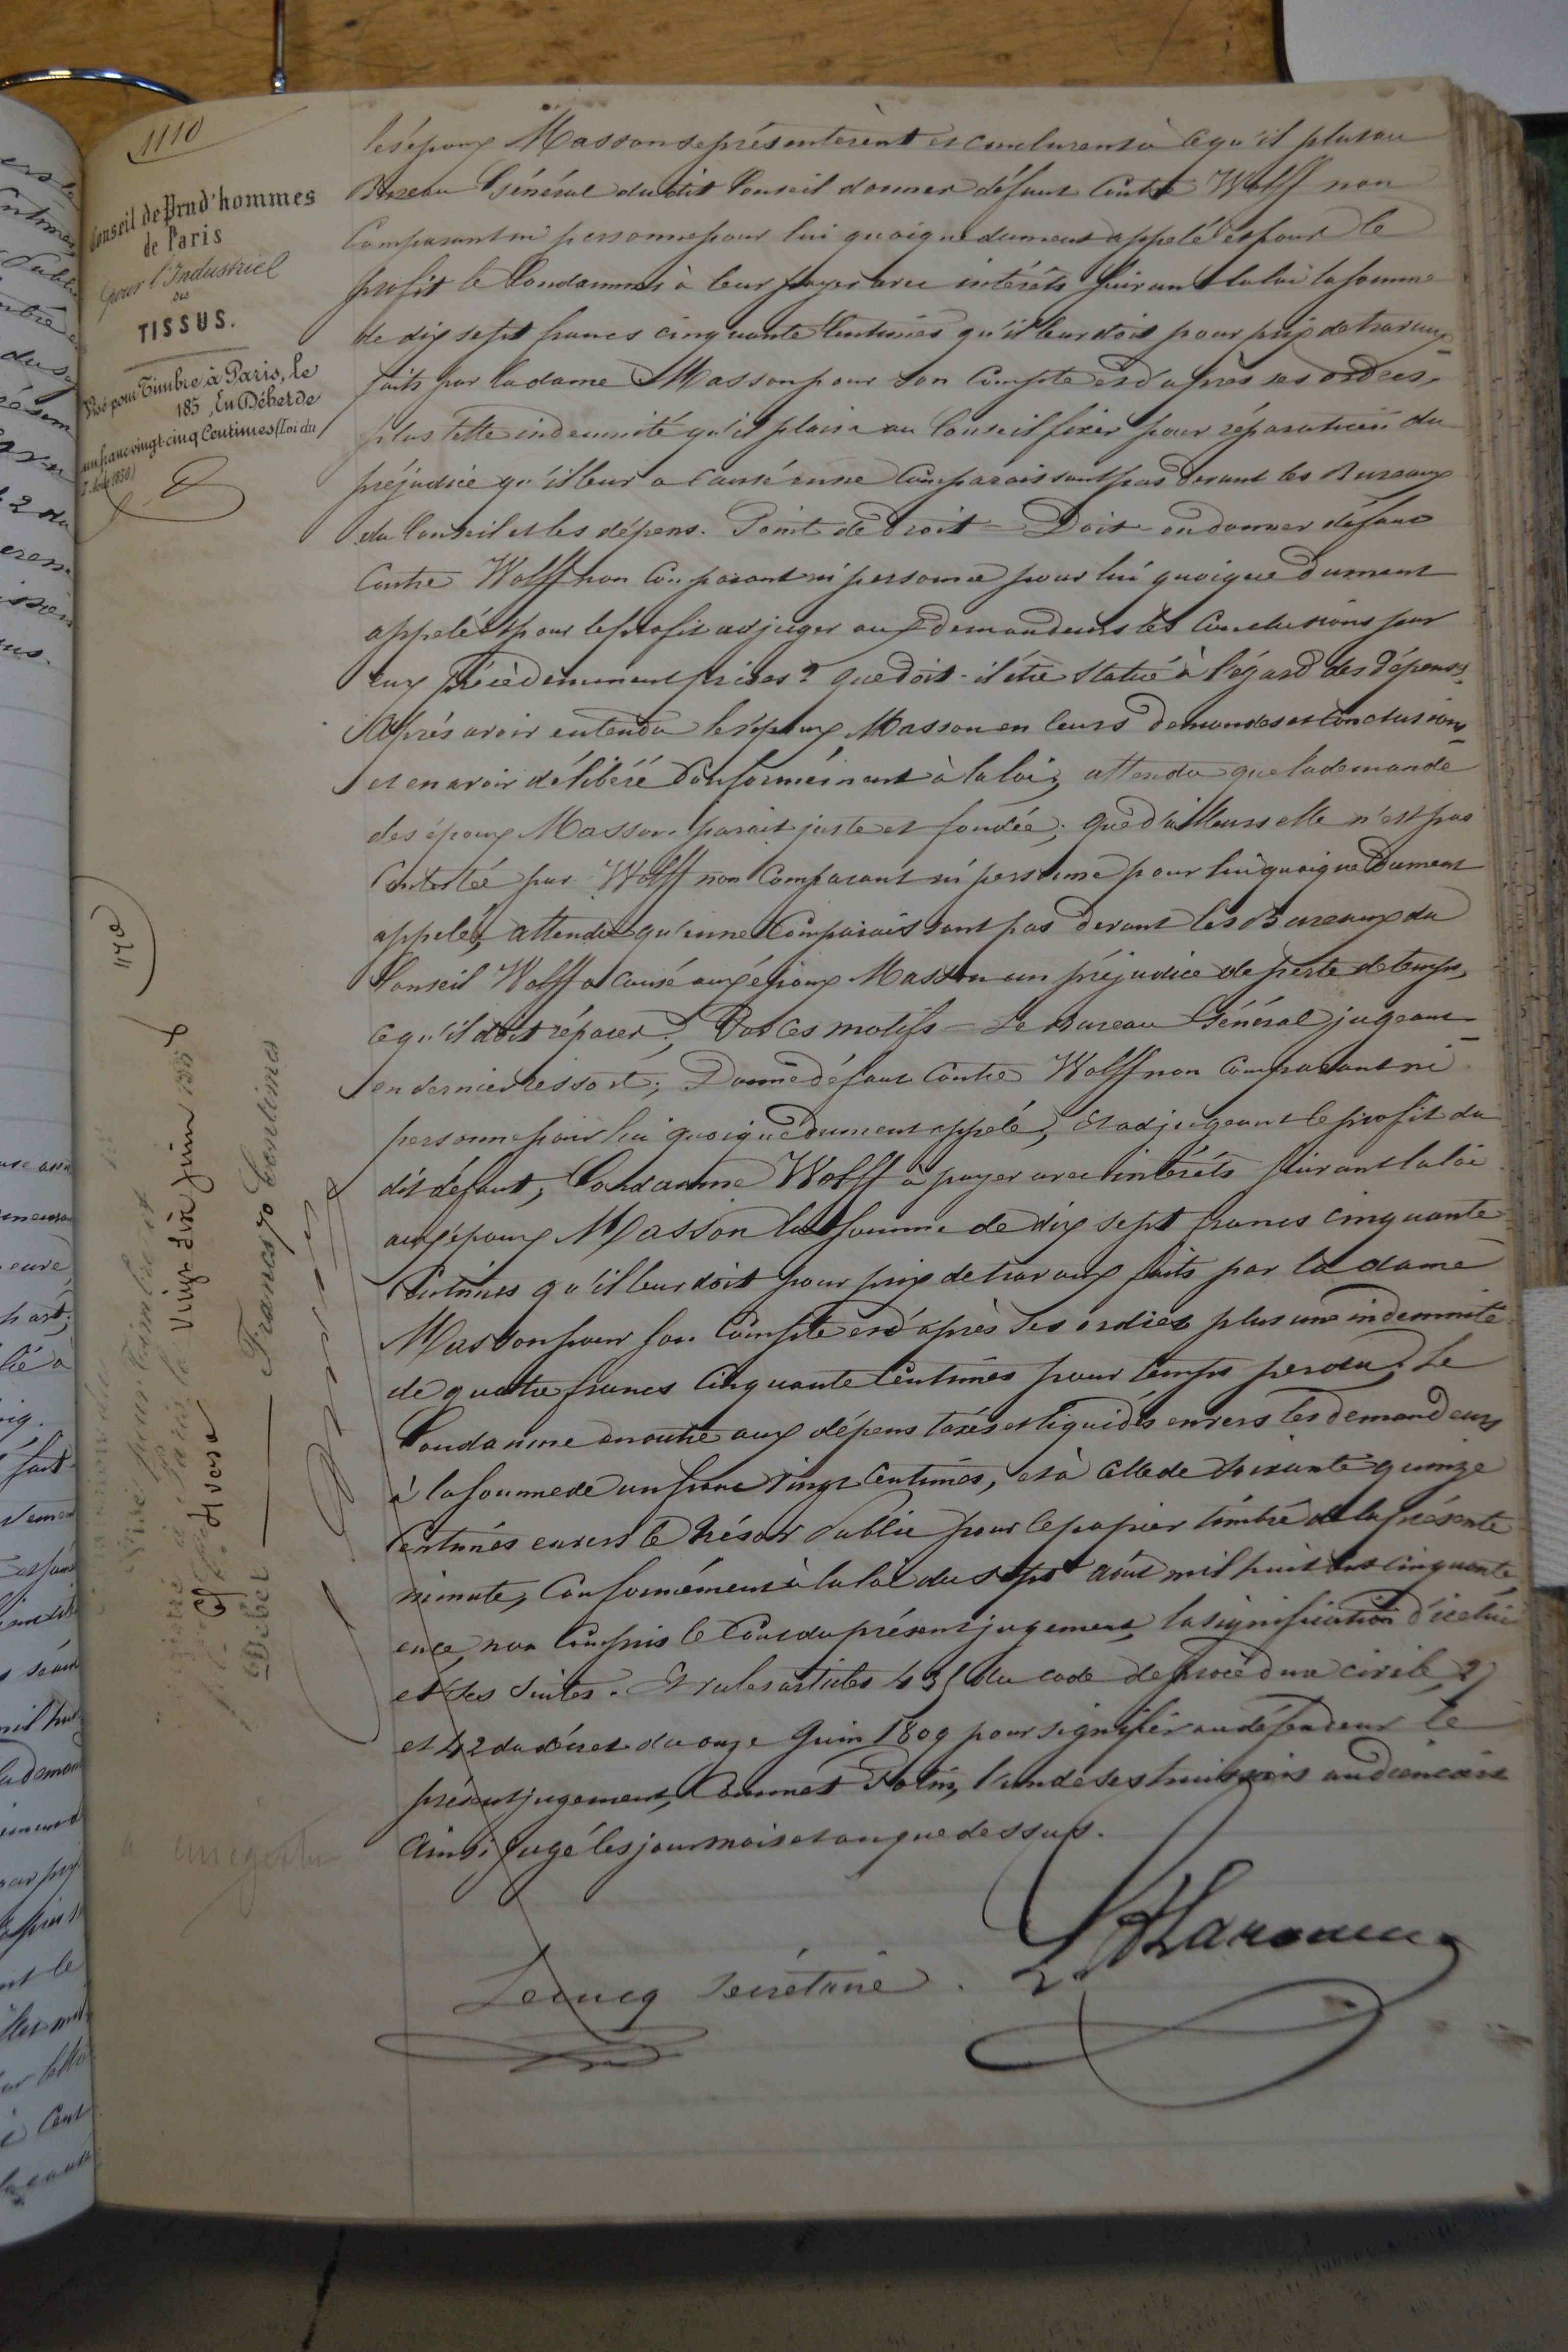 1110
Conseil de Prud'hommes
de Paris
pour l'Industriel
des
TISSUS.
Visé pour Timbre à Paris, le
185 , En Débet de
un franc vingt-cinq Centimes (Loi du
les époux Masson se présentèrent et conclurent à ce qu'il plut au
Bureau Général du dit Conseil donner défaut Contre Wolff non
Comparant ni personne pour lui quoique dument appelé et pour le
profit le Condamner à leur payer avec intérêts suivant la loi la somme
de dix sept francs cinquante Centimes qu'il leur doit pour prix de travaux
faits par la dame Masson pour son Compte et d'après ses ordres
plus telle indemnité qu'il plaira au Conseil fixer pour réparation du
préjudice qu'il leur a causé en ne Comparaissant pas devant les Bureaux
du Conseil et les dépens. Point de droit – Doit-on donner défaut
Contre Wolff non Comparant ni personne pour lui quoique dument
appelé et pour le profit adjuger aux demandeurs les Conclusions par
eux précédemment prises? que doit-il être statué à l'égard des dépens?
Après avoir entendu les époux Masson en leurs demandes et Conclusions
et en avoir délibéré Conformément à la loi; attendu que la demande
des époux Masson parait juste et fondée; que d'ailleurs elle n'est pas
Contestée par Wolff non Comparant ni personne pour lui quoique dument
appelé; attendu qu'en ne Comparaissant pas devant les Bureaux du
Conseil Wolff a causé aux époux Masson un préjudice de perte de temps,
ce qu'il doit réparer; Par ces motifs – Le Bureau Général jugeant
en dernier ressort; Donne défaut Contre Wolff non Comparant ni
personne pour lui quoique dument appelé; Et adjugeant le profit du
dit défaut; Condamne Wolff à payer avec intérêts suivant la loi
aux époux Masson la somme de dix sept francs cinquante
Centimes qu'il leur doit pour prix de travaux faits par la dame
Masson pour son Compte et d'après ses ordres plus une indemnité
de quatre francs Cinquante Centimes pour temps perdu; Le
Condamne en outre aux dépens taxés et liquidés envers les demandeurs
à la somme de un franc vingt Centimes, et à celle de soixante quinze
Centimes envers le Trésor Public pour le papier timbré de la présente
minute, Conformément à la loi du sept août mil huit cent cinquante
ence, non Compris le Coût du présent jugement, la signification d'icelui
et ses suites. Et vu les articles 435 du code de procédure civile, 27
et 42 du décret du onze Juin 1809 pour signifier au défendeur le
présent jugement, Commet Potin, l'un de ses huissiers audienciers
Ainsi jugé les jour mois et an que dessus.
Lecucq secrétaire.
Vingt six juin 185
Débet — Francs 70 Centimes